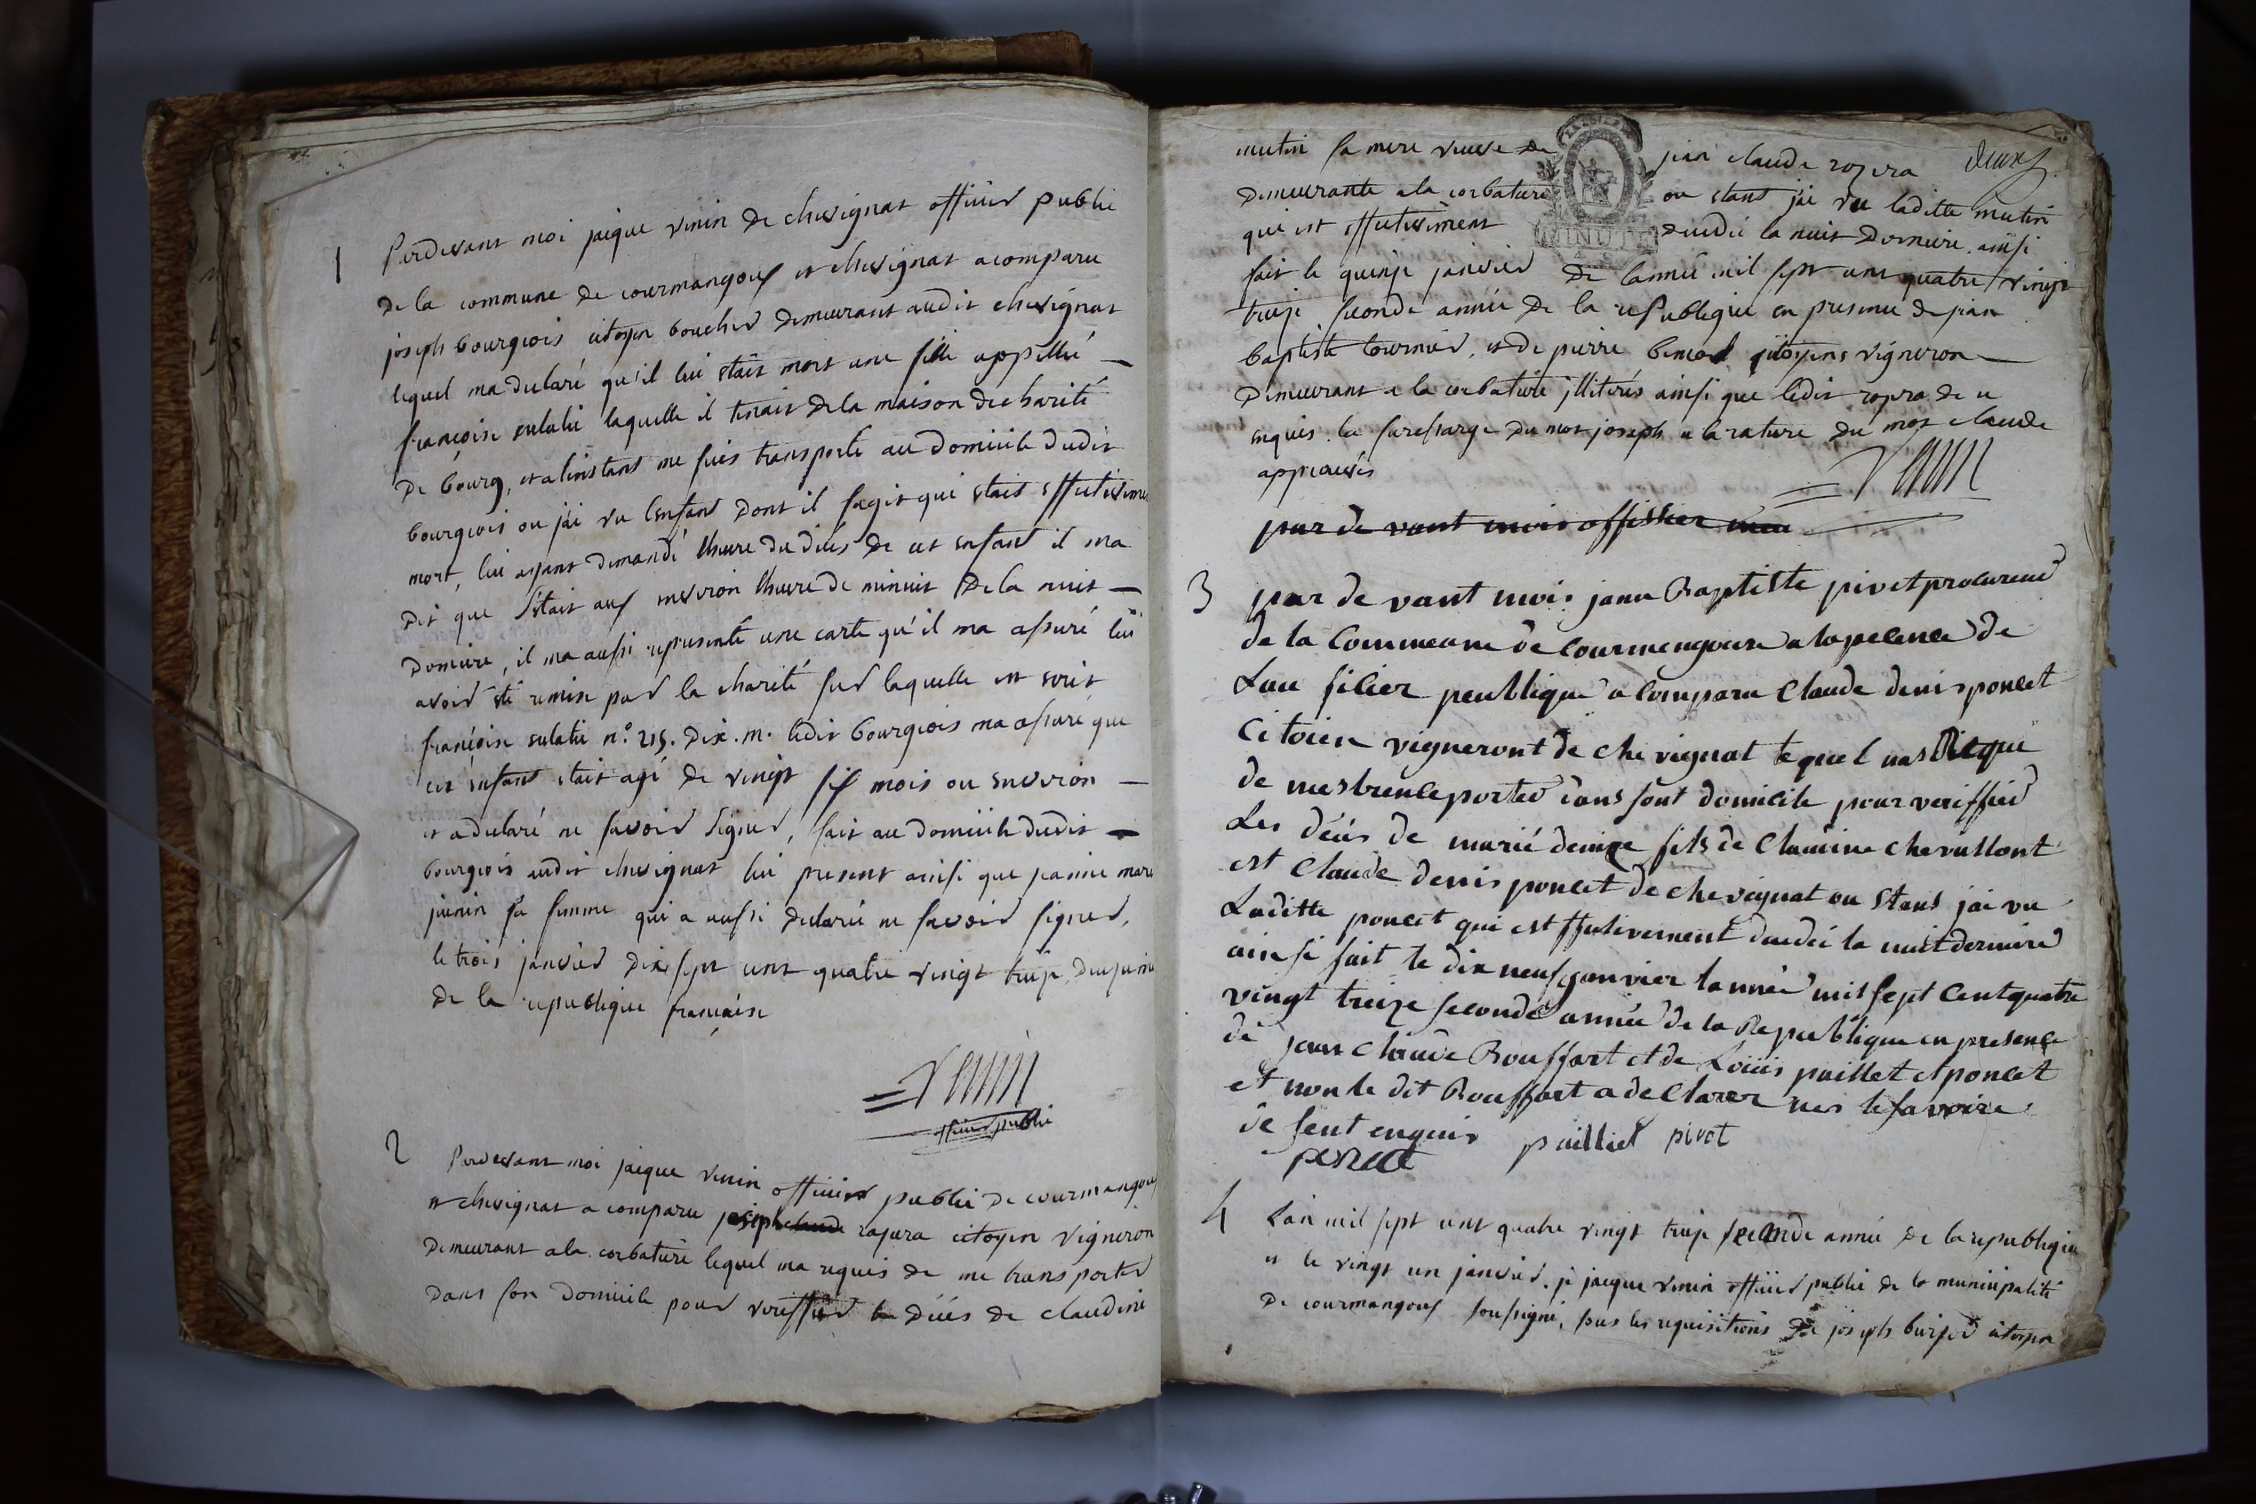 1
Pardevant moi jacque venin de chevignat officier public
de la commune de courmangoux et chevignat a comparu
joseph bourgeois citoyen boucher demeurant audit chevignat
lequel ma declaré qu'il lui etait mort une fille appellée
françoise eulalie laquelle il tenait de la maison de charité
de bourg, et a l'instant me suis transporté au domicile dudit
bourgeois ou j'ai vu l'enfant dont il sagit qui etait effectiveme
mort, lui ayant demandé l'heure du décès de cet enfant il ma
dit que s'etait aux environ l'heure de minuit de la nuit
derniere, il ma aussi representé une carte qu'il ma assuré lui
avoir été remise par la charité sur laquelle est ecrit
françoise eulalie n.° 215. dix. m. ledit bourgeois ma assuré que
cet enfant etait agé de vingt six mois ou environ
et a declaré ne savoir signer, fait au domicile dudit
bourgeois audit chevignat lui present ainsi que jeanne marie
si femme qui a aussi declaré ne savoir signer,
le trois janvier dix sept cent quatre vingt treize, deuxieme
de la republique française
Venin
officier public
2
Pardevant moi jacque venin officier public de courmangoux
et chevignat a comparu joseph claude rozera citoyen vigneron
demeurant a la corbature lequel ma requis de me transporter
dans son domicile pour veriffier le décès de claudine
deux
mutin sa mere veuve de jean claude rozera
demeurante a la corbature ou etant j'ai vu laditte mutin
qui est effectivement decedée la nuit derniere. ainsi
MINUTE
fait le quinze janvier de l'année mil sept cent quatre vingt
treize seconde année de la republique en presence de jean
baptiste tournier, et de pierre benoid citoyens vigneron
demeurant a la corbature illiterés ainsi que ledit rozera de ce
enquis. la surcharge du mot joseph et la rature du mot claude
approuvés
Venin
par de vant mois offissier
3
par de vant mois janu Baptiste pivet procureur
de la Commeune de Courmengouse a lapcence de
Lau ficier peublique a Comparu Claude denis poncet
Citoien vigneront de chevignat lequel mas Dit que
de mestrence porter dans sont domicile pour veriffier
Les décés de marie denize fils de Claudine chevallont
est Claude denis poncet de chevignat ou etant jai vu
Laditte poncet qui est ffectivement decedée la nuit derniere
ainsi fait le dix neuf ganvier lannée mil sept Cent quatre
vingt treize seconde année de la Republique en presence
de jean Claude Bouffart et de Louis paillet et poncet
et non le dit Bouffart a deClarer nes le savoire
de sent enquis pailliet pivet
poncet
4
Lan mil sept cent quatre vingt treize seconde année de la republique
et le vingt un janvier. je jacque venin officier public de la municipalité
de courmangoux soussigné, sur les requisitions de joseph citoyen